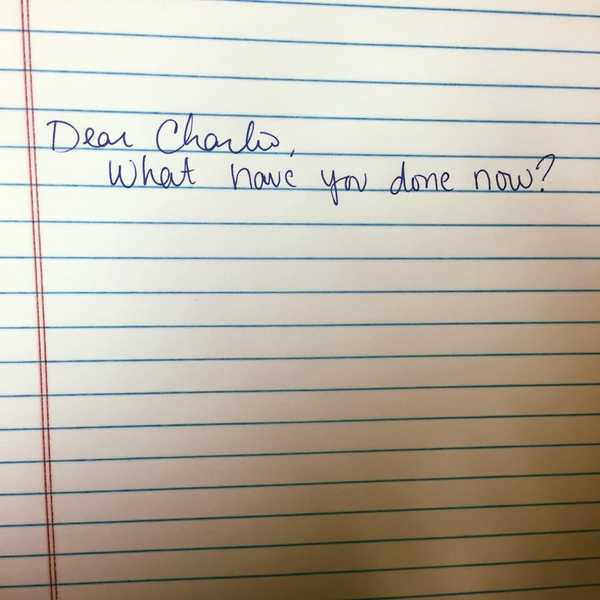 Dear Charlie,
What have you done now?